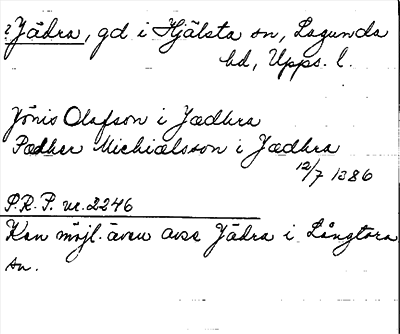 ? Jädra, gd i Hjälsta sn, Lagunda
hd, Upps. l.
Jönis Olafson i Jædhra
Pædher Michiælsson i Jædhra
12/7 1386
P.R.P. nr. 2246
Kan möjl. även avse Jädra i Långtora
sn.